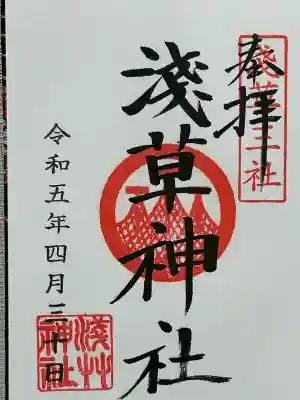 奉拝
淺草三社
淺草神社
令和五年四月三十日
淺草
神社